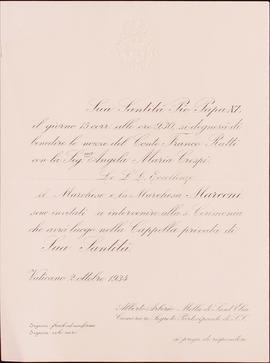 Sua Santità Pio Papa XI.
il giorno 15 corr. alle ore 9.30, si degnerà di
benedire le nozze del Conte Franco Ratti
con la Sig.na Angela Maria Crespi.
Le L.L. Eccellenze
il Marchese e la Marchesa Marconi
sono invitati a intervenire alla s. Cerimonia
che avrà luogo nella Cappella privata di
Sua Santità.
Vaticano 2 ottobre 1934
Alberto Arborio Mella di Sant'Elia
Cameriere Segreto Partecipante di S.S.
Signori
Signore velo nero
si prega di rispondere